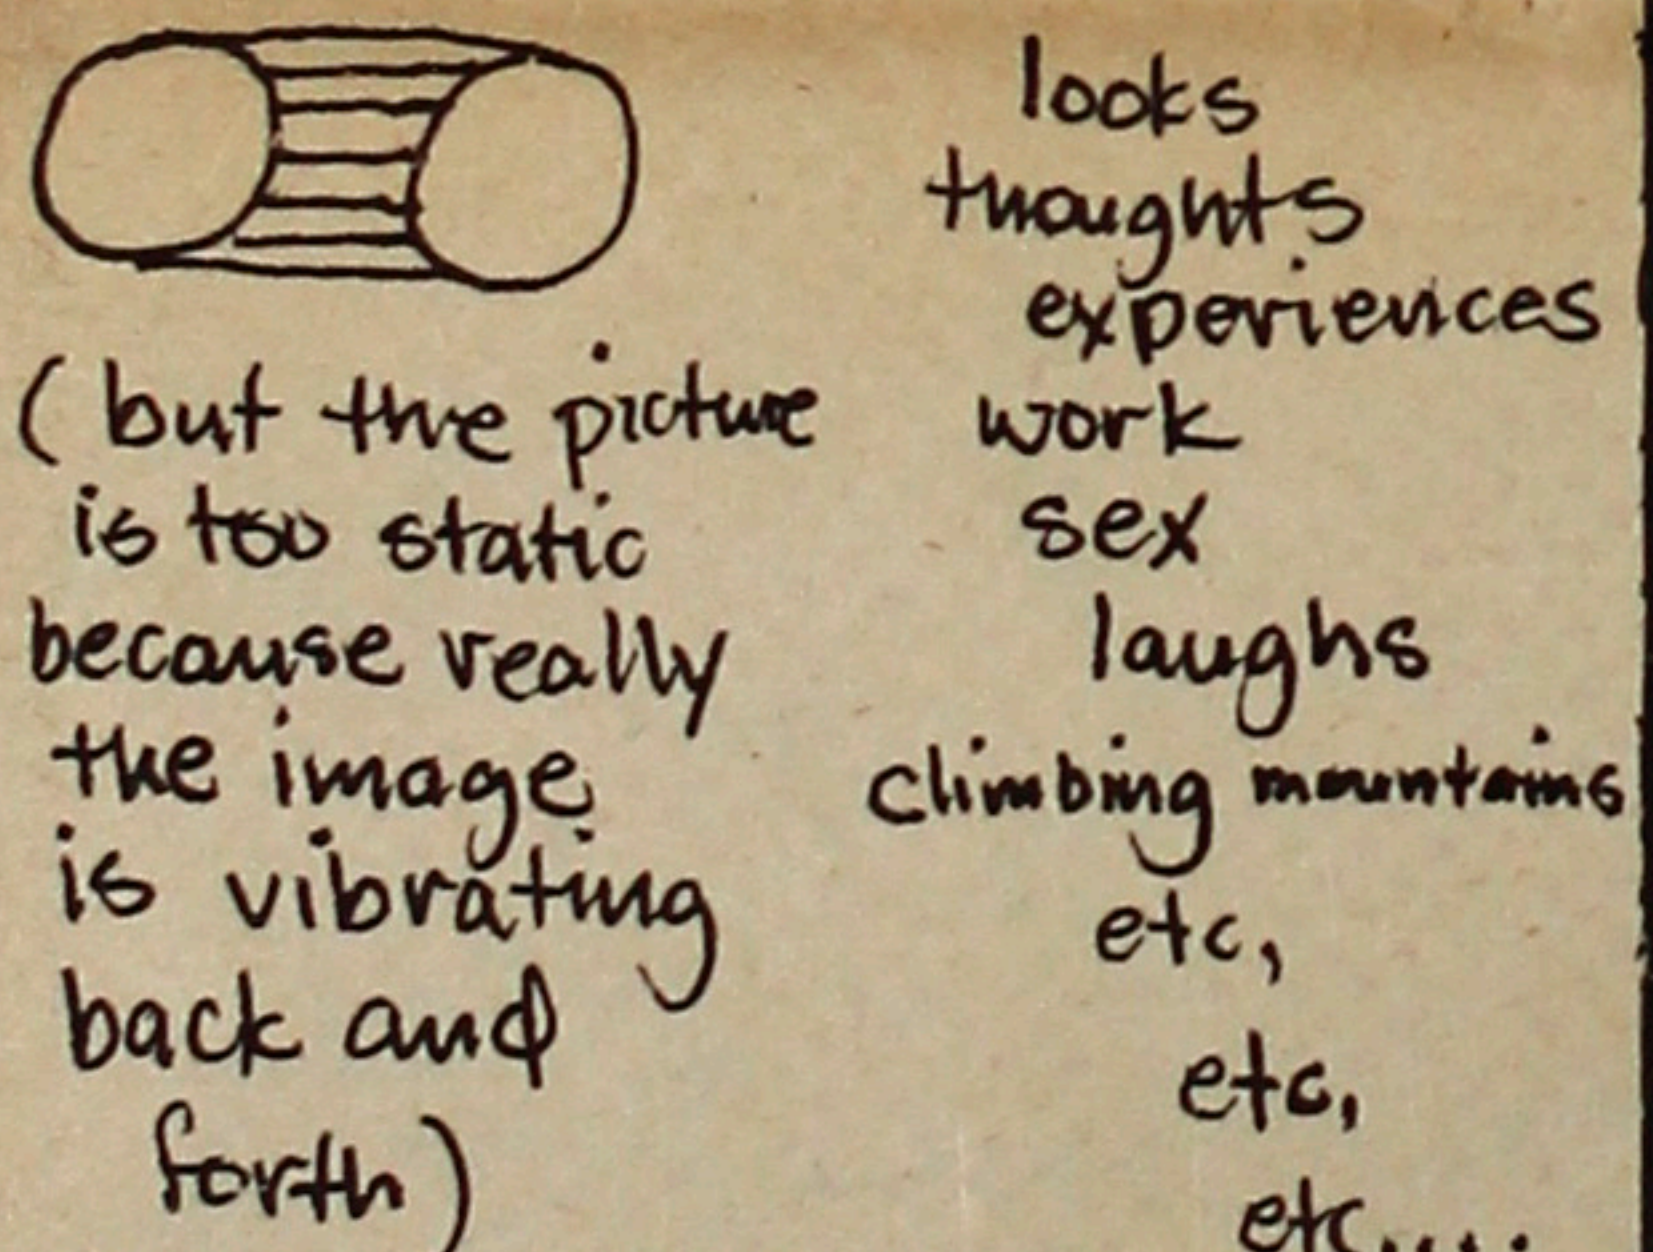 (but the picture
is too static
because really
the image
is vibrating
back and
forth)
looks
thoughts
experiences
work
sex
laughs
climbing mountains
etc,
etc,
etc....